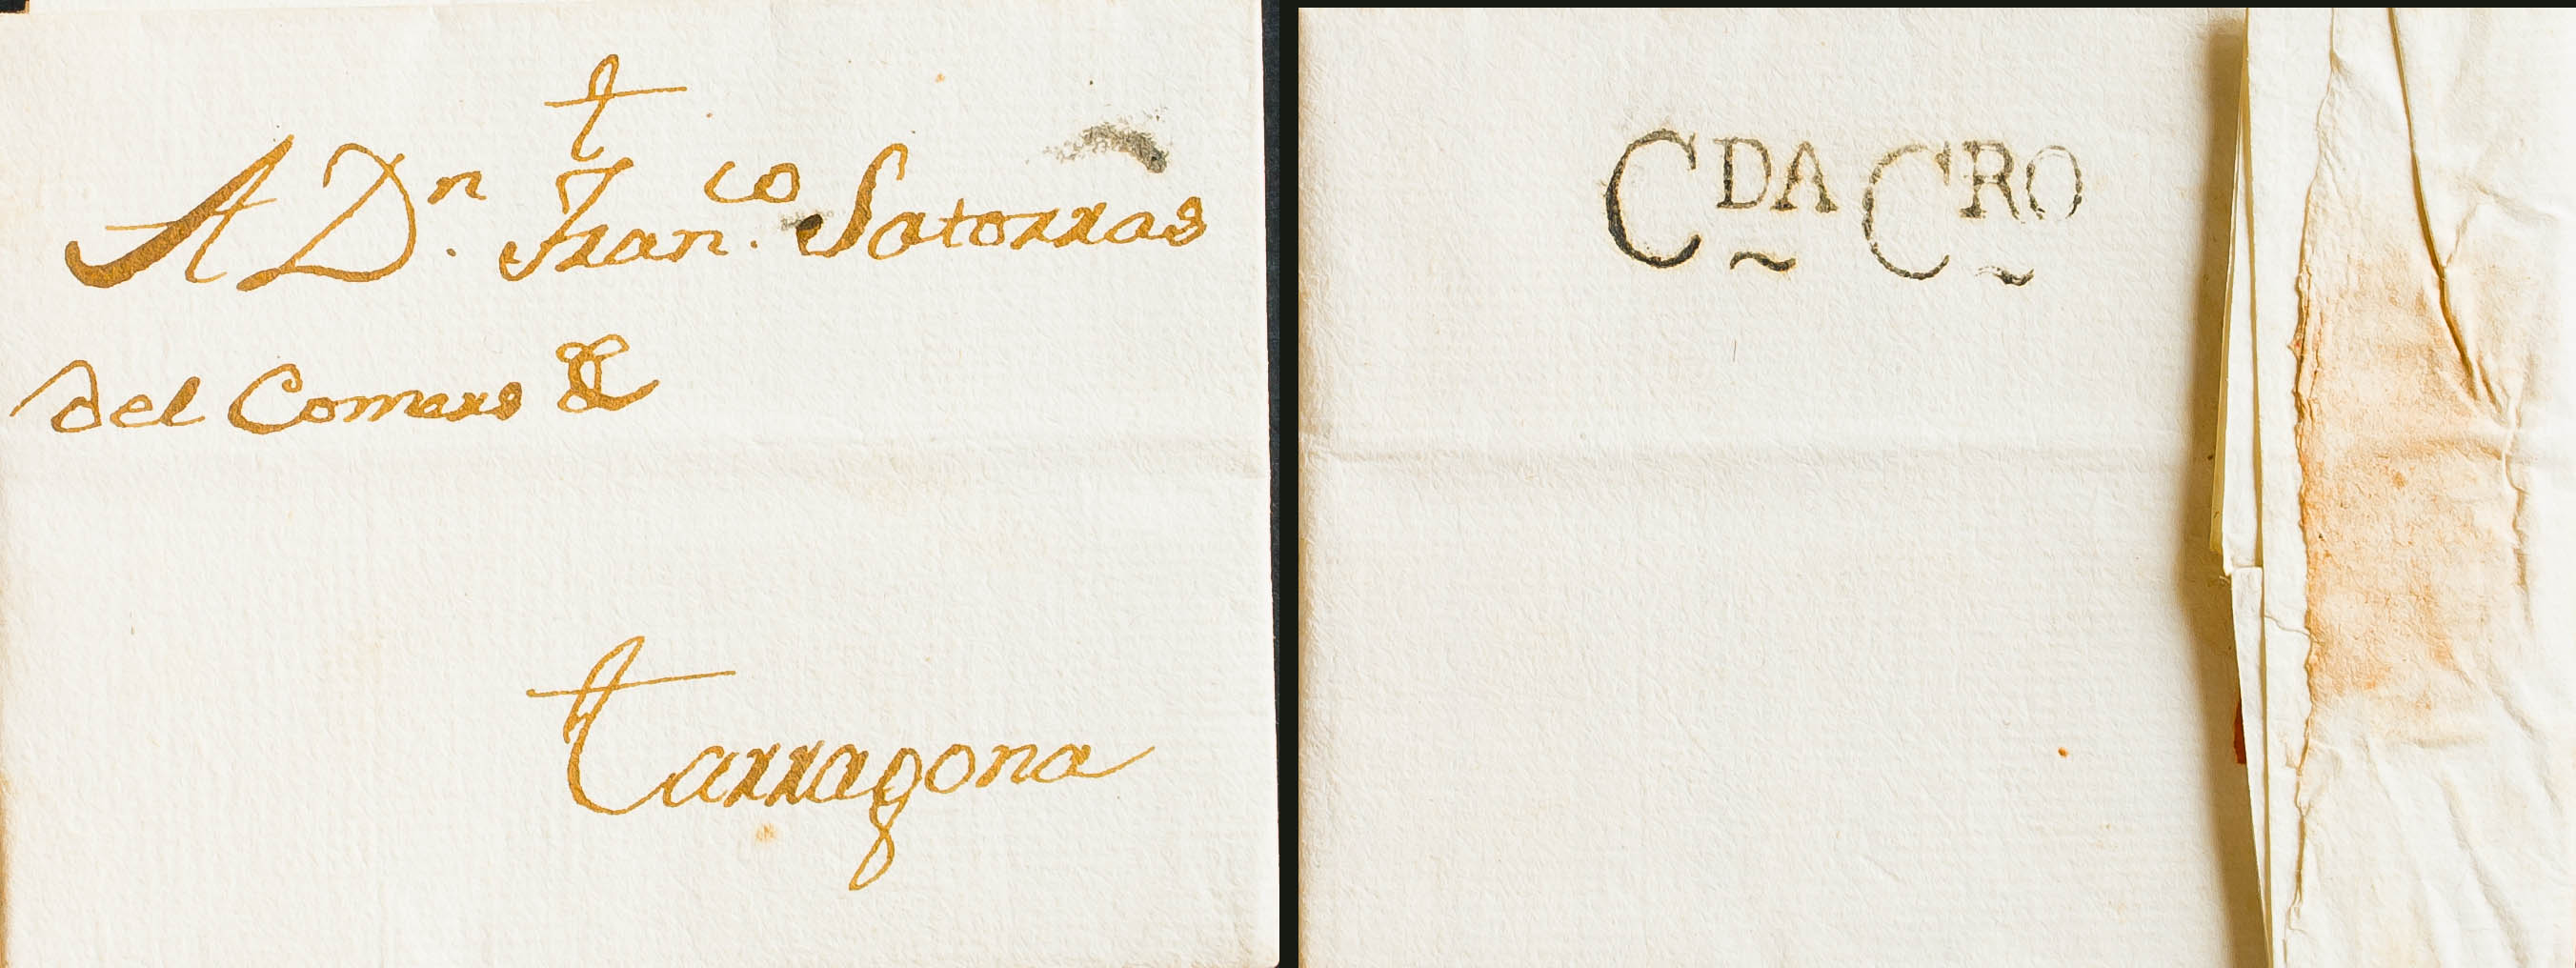 A Dn. Franco. Satorras
del Comers &
Tarragona
CDA CRO